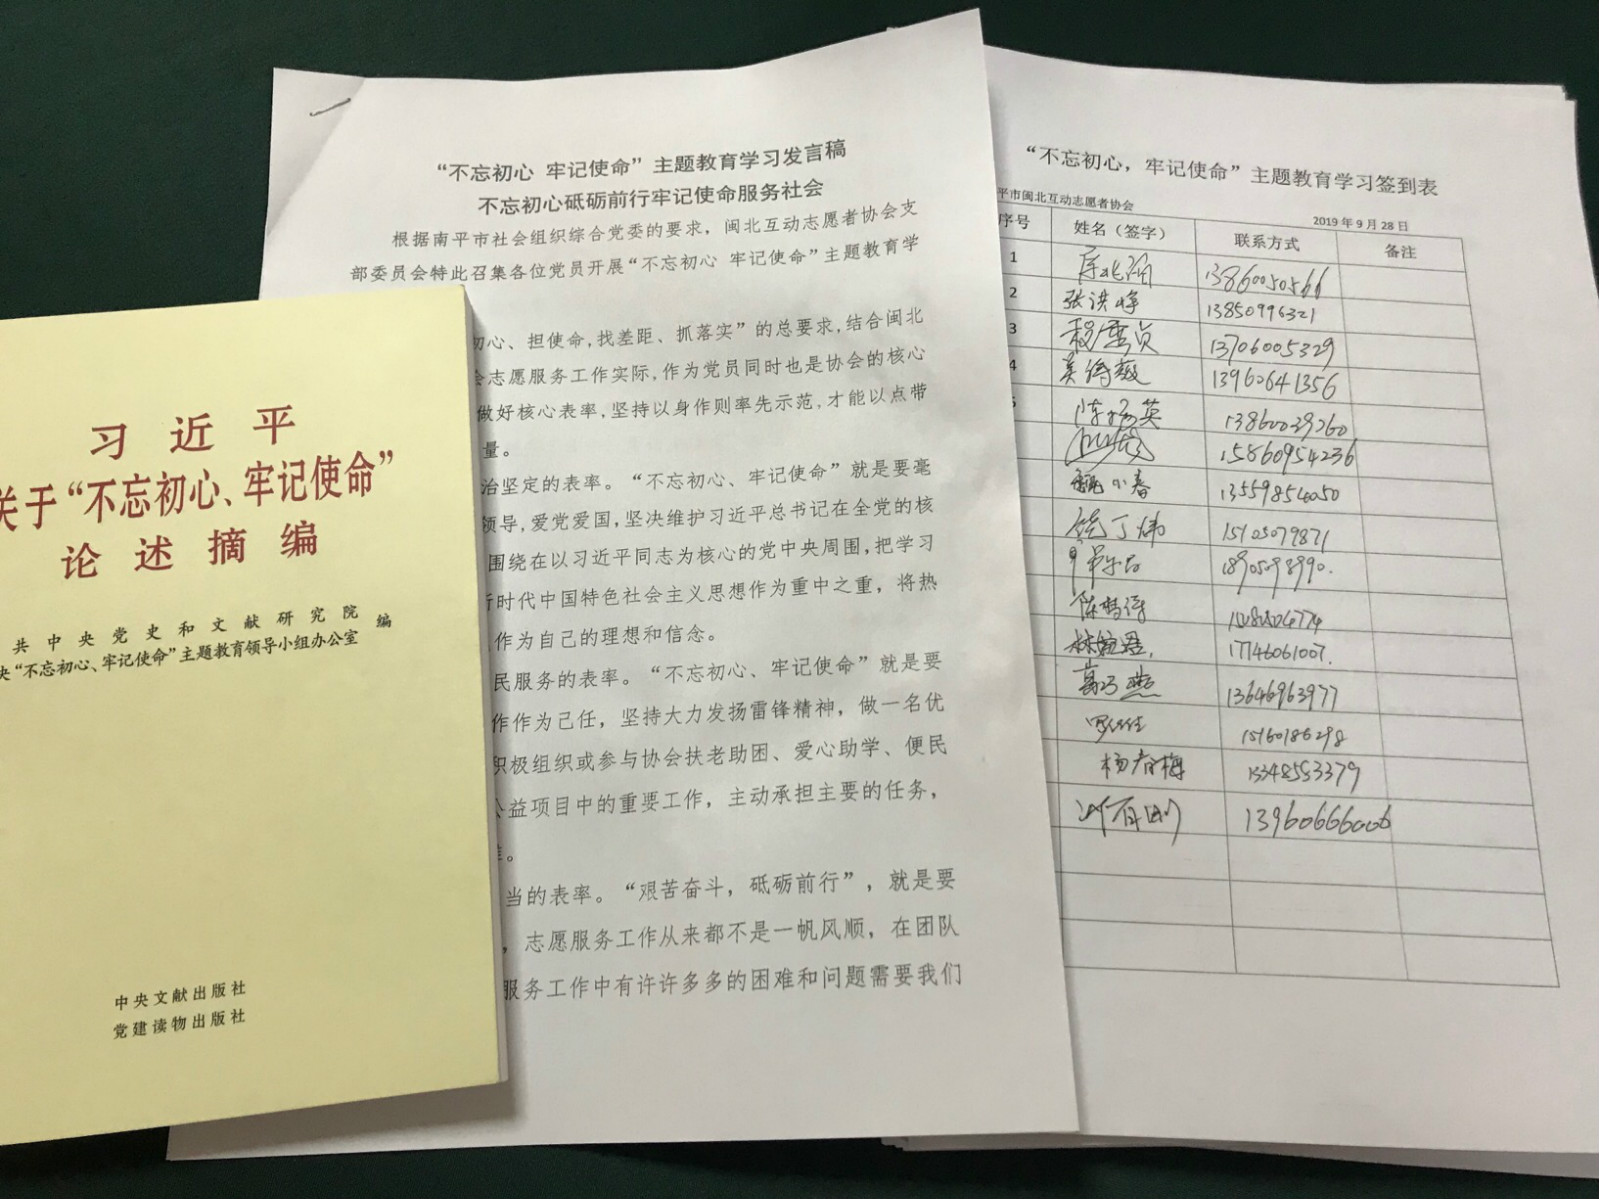 习近平
关于“不忘初心、牢记使命”
论述摘编
共中央党史和文献研究院
央“不忘初心、牢记使命”主题教育领导小组办公室
编
中央文献出版社
党建读物出版社
“不忘初心 牢记使命”主题教育学习发言稿
不忘初心砥砺前行牢记使命服务社会
根据南平市社会组织综合党委的要求，闽北互动志愿者协会支
部委员会特此召集各位党员开展“不忘初心 牢记使命”主题教育学
初心、担使命,找差距、抓落实”的总要求,结合闽北
会志愿服务工作实际,作为党员同时也是协会的核心
做好核心表率,坚持以身作则率先示范,才能以点带
量。
治坚定的表率。“不忘初心、牢记使命”就是要毫
领导,爱党爱国,坚决维护习近平总书记在全党的核
围绕在以习近平同志为核心的党中央周围,把学习
新时代中国特色社会主义思想作为重中之重，将热
作为自己的理想和信念。
民服务的表率。“不忘初心、牢记使命”就是要
作作为己任，坚持大力发扬雷锋精神，做一名优
积极组织或参与协会扶老助困、爱心助学、便民
公益项目中的重要工作，主动承担主要的任务，
。
当的表率。“艰苦奋斗，砥砺前行”，就是要
，志愿服务工作从来都不是一帆风顺，在团队
服务工作中有许许多多的困难和问题需要我们
“不忘初心，牢记使命”主题教育学习签到表
平市闽北互动志愿者协会
2019年9月28日
序号 姓名（签字） 联系方式 备注
1 13860050566
2 张洪峰 13850996321
3 13706005329
4 13960641356
5 陈杨英 13860039260
15860954236
魏小春 13559854050
饶丁炜 15105079871
18905098990.
陈梦得
17746061007.
葛巧燕 13646963977
15160186298
杨春梅 13348553379
13960666006